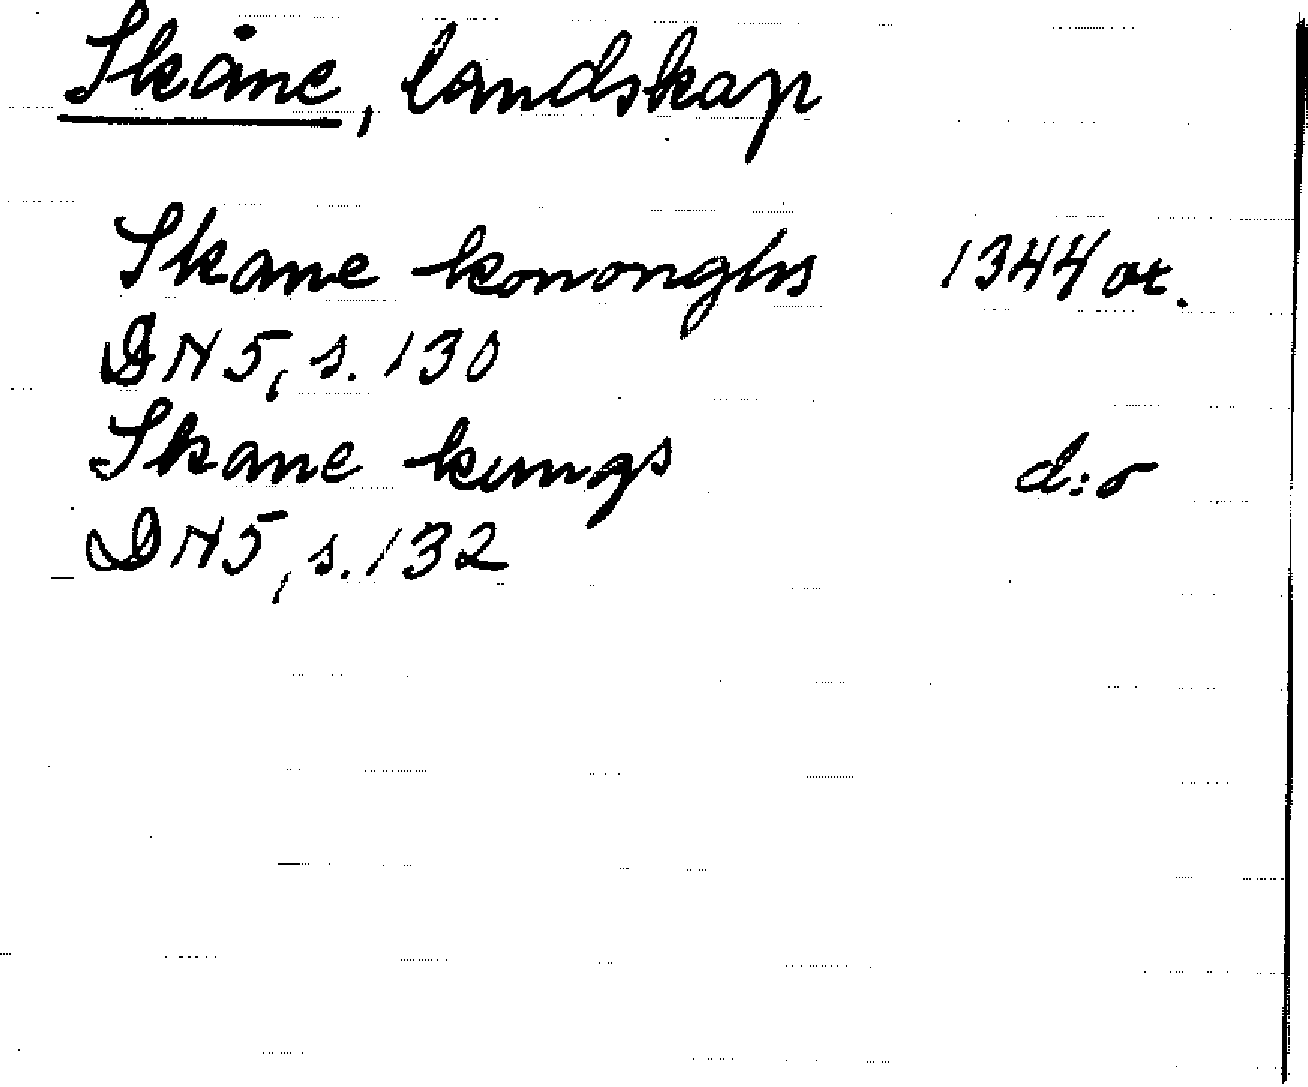 Skåne, landskap
Skane kononghs 1344 or.
DN 5, s. 130
Skane kungs d:o
DN 5, s. 132